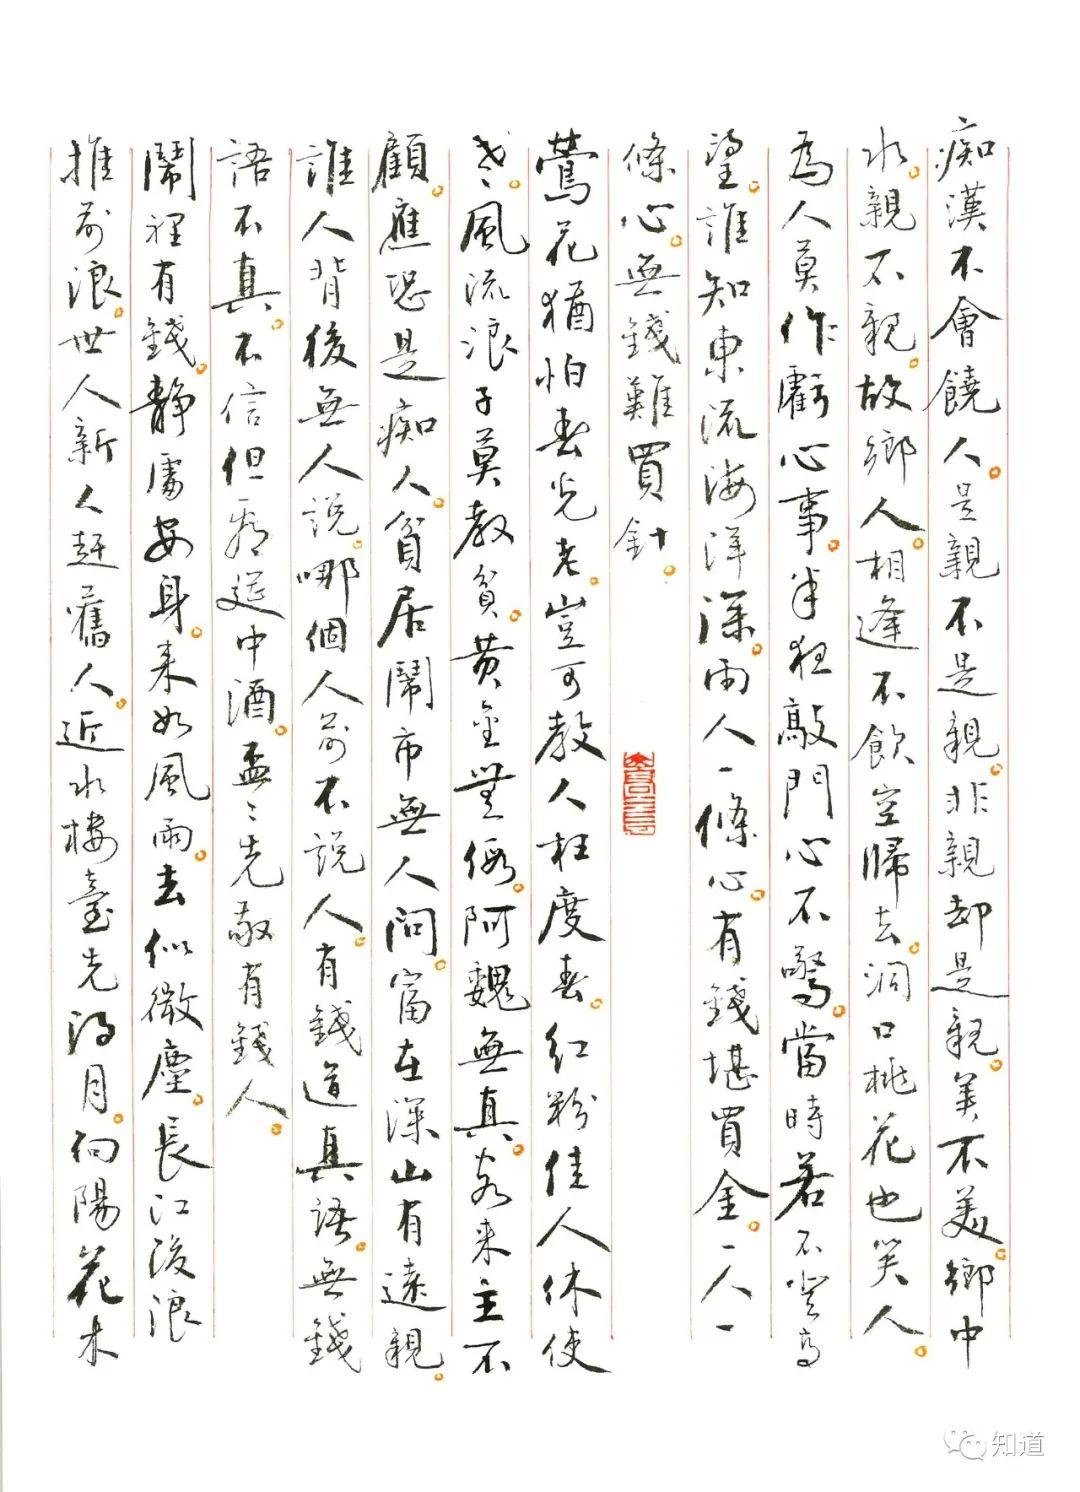 痴漢不會饒人。是親不是親。非親却是親。美不美。鄉中
水。親不親。故鄉人。相逢不飲空歸去。洞口桃花也笑人。
為人莫作虧心事。半夜敲門心不驚。當時若不登高
望。誰知東流海洋深。兩人一條心。有錢堪買金。一人一
條心。無錢難買針。
鶯花猶怕春光老。豈可教人枉度春。红粉佳人休使
老。風流浪子莫教貧。黄金無假。阿魏無真。客来主不
顧。應恐是痴人。貧居鬧市無人問。富在深山有遠親。
誰人背後無人説。哪個人前不説人。有錢道真語。無錢
語不真。不信但看筵中酒。盃〻先敬有錢人。
鬧裡有錢。静處安身。来如風雨。去似微塵。長江後浪
推前浪。世人新人赶舊人。近水樓臺先得月。向陽花木
知道